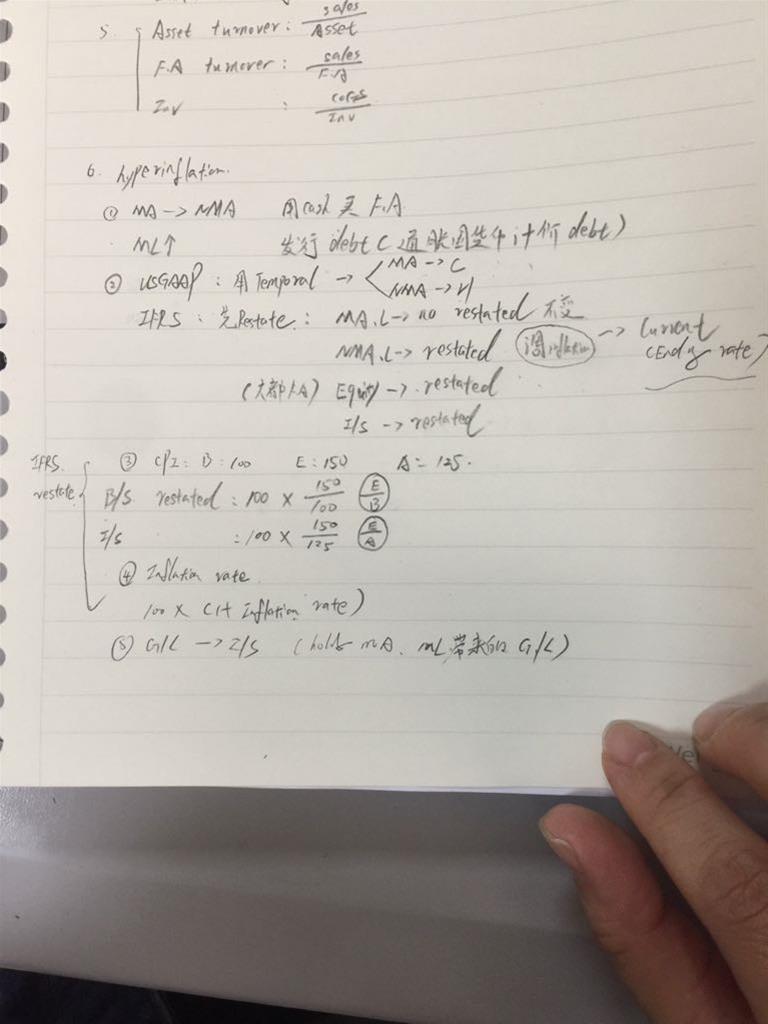 5. Asset turnover : sales / Asset
F.A turnover : sales / F.A
Inv : COGS / Inv
6. hyperinflation.
① MA → NMA 用cash买 F.A
ML↑ 发行 debt (通胀国货币计价 debt)
② USGAAP : 用Temporal → MA → C
NMA → H
IFRS : 先Restate : MA.L → no restated 不变
NMA.L → restated 调inflation → Current
(Ending rate)
(大部分A) Equity → restated
I/S → restated
IFRS restate
③ CPI : B : 100 E : 150 A = 125.
B/S restated : 100 × 150/100 E/B
I/S : 100 × 150/125 E/A
④ Inflation rate
100 × (1+ Inflation rate)
⑤ G/L → I/S (hold MA. ML带来的 G/L)